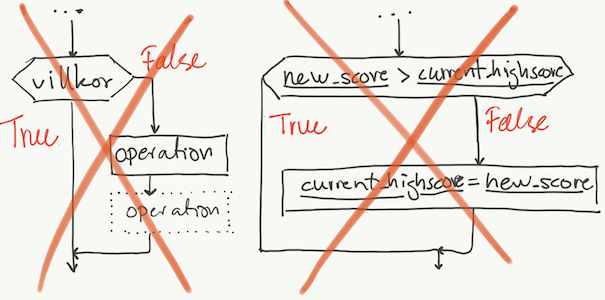 ...
villkor
False
True
operation
operation
...
new_score > current_highscore
True
False
current_highscore = new_score